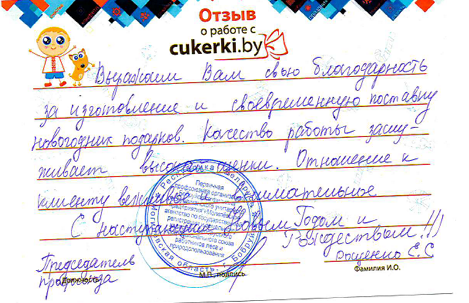 Отзыв
о работе с
cukerki.by
Выражаем Вам свою благодарность
за изготовление и своевременную поставку
новогодних подарков. Качество работы заслу-
живает высокой оценки. Отношение к
клиенту вежливое и внимательное
С наступающим Новым Годом и
Рождеством!!)
Председатель
профсоюза
Рощенко Е.С
М.П. подпись.
Фамилия И.О.